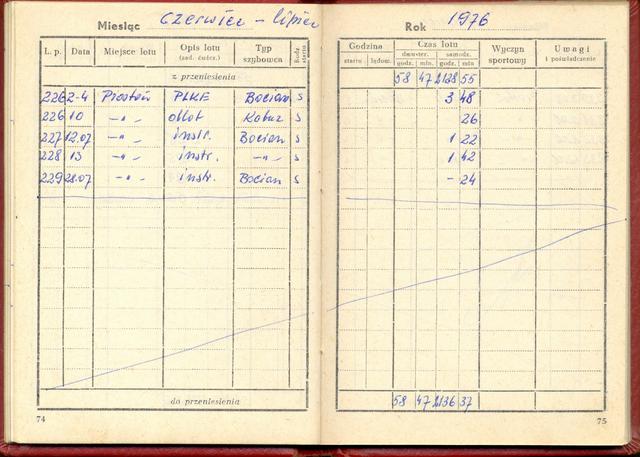 Miesiąc Czerwiec - lipiec
L. p. Data Miejsce lotu Opis lotu (zad. ćwicz.) Typ szybowca Rodz. startu
z przeniesienia
226 2-4 PLKE Bocian s
226 10 -"- oblot Kobuz s
227 12.07 -"- instr. Bocian s
228 13 -"- instr. -"- s
229 28.07 -"- instr. Bocian s
do przeniesienia
74
Rok 1976
Godzina Czas lotu Wyczyn sportowy Uwagi i poświadczenie
startu lądow. dwuster. samodz.
godz. min. godz. min
58 47 2128 55
3 48
26
1 22
1 42
- 24
58 47 2136 37
75